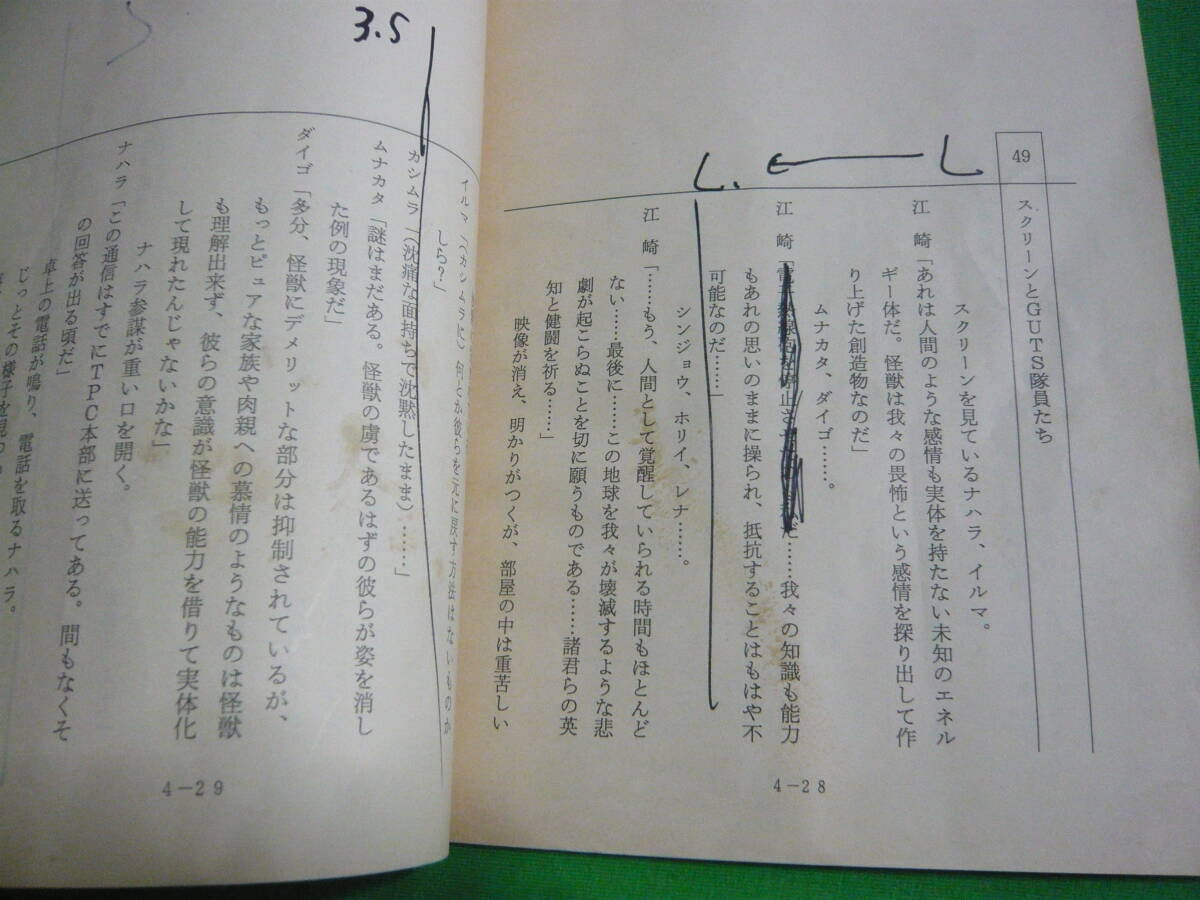 49
スクリーンとGUTS隊員たち
スクリーンを見ているナハラ、イルマ。
江　崎「あれは人間のような感情も実体を持たない未知のエネル
ギー体だ。怪獣は我々の畏怖という感情を探り出して作
り上げた創造物なのだ」
ムナカタ、ダイゴ……。
江　崎「
だ……我々の知識も能力
もあれの思いのままに操られ、抵抗することはもはや不
可能なのだ……」
シンジョウ、ホリイ、レナ……。
江　崎「……もう、人間として覚醒していられる時間もほとんど
ない……最後に……この地球を我々が壊滅するような悲
劇が起こらぬことを切に願うものである……諸君らの英
知と健闘を祈る……」
映像が消え、明かりがつくが、部屋の中は重苦しい
4－28
3.5
イルマ「（カシムラに）何とか彼らを元に戻す方法はないものか
しら？」
カシムラ「（沈痛な面持ちで沈黙したまま）……」
ムナカタ「謎はまだある。怪獣の虜であるはずの彼らが姿を消し
た例の現象だ」
ダイゴ「多分、怪獣にデメリットな部分は抑制されているが、
もっとピュアな家族や肉親への慕情のようなものは怪獣
も理解出来ず、彼らの意識が怪獣の能力を借りて実体化
して現れたんじゃないかな」
ナハラ参謀が重い口を開く。
ナハラ「この通信はすでにTPC本部に送ってある。間もなくそ
の回答が出る頃だ」
卓上の電話が鳴り、電話を取るナハラ。
じっとその様子を見つ
4－29